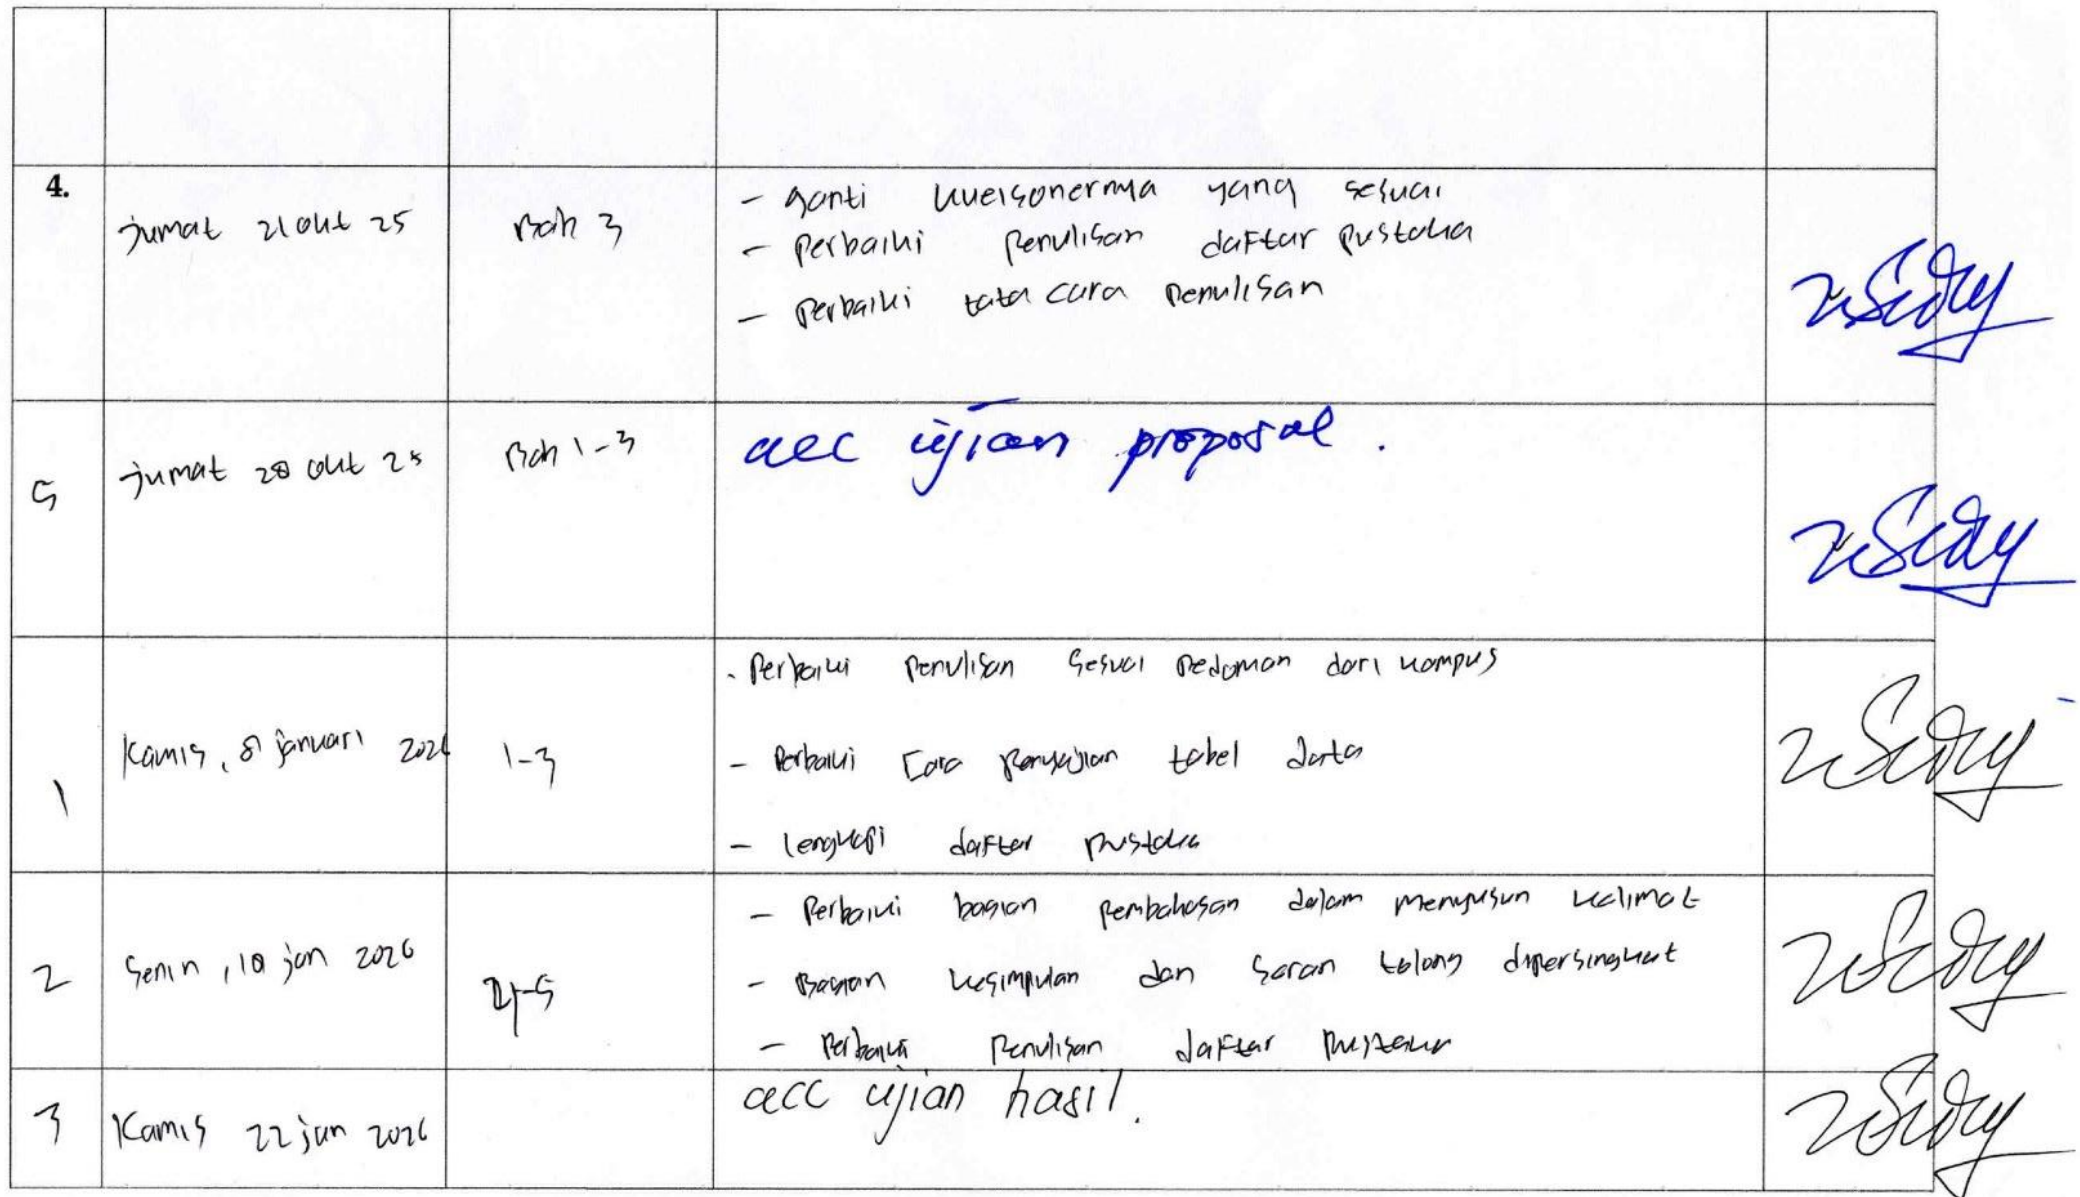 4. Jumat 21 Okt 25 Bab 3 - ganti kueisonernya yang sesuai
- Perbaiki Penulisan daftar Pustaka
- Perbaiki tata cara Penulisan
5 Jumat 28 Okt 25 Bab 1-3 acc ujian proposal.
- Perbaiki Penulisan Sesuai Pedoman dari kampus
1 Kamis, 8 januari 2026 1-3 - Perbaiki Cara Penyajian tabel data
- lengkapi daftar Pustaka
- Perbaiki bagian Pembahasan dalam menyusun kalimat
2 Senin, 18 jan 2026 4-5 - Bagian kesimpulan dan Saran tolong dipersingkat
- Perbaiki Penulisan daftar Pustaka
3 Kamis 22 jan 2026 acc ujian hasil.